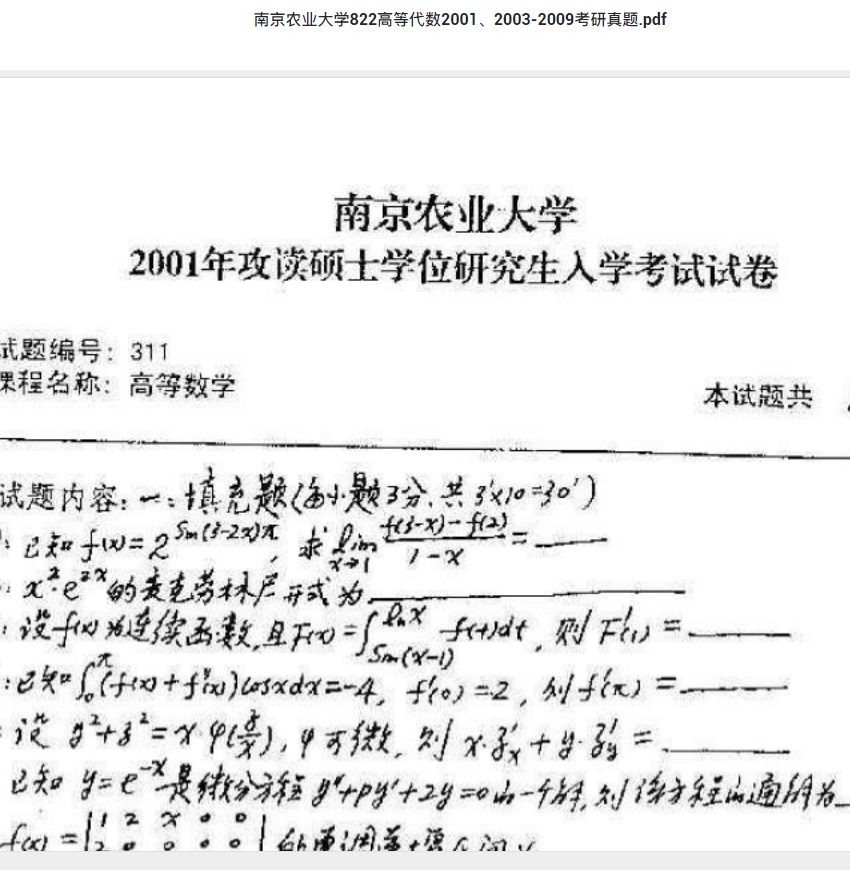 南京农业大学822高等代数2001、2003-2009考研真题.pdf
南京农业大学
2001年攻读硕士学位研究生入学考试试卷
试题编号：311
课程名称：高等数学
本试题共
试题内容：一：填充题(每小题3分.共3'×10=30')
：已知 f(x)=2^{Sin(3-2x)π}，求 lim_{x→1} \frac{f(3-x)-f(2)}{1-x}=____
：x²·e^{2x}的麦克劳林展开式为____
：设f(x)为连续函数,且F(x)=∫_{Sin(x-1)}^{lnx} f(t)dt，则F'(1)=____
：已知∫_0^π(f(x)+f''(x))cosxdx=-4，f'(0)=2，则f'(π)=____
设 y²+z²=x·φ(\frac{z}{x})，φ可微，则 x·z'_x+y·z'_y=____
已知 y=e^{-x}是微分方程y''+py'+2y=0的一个解,则该方程的通解为__
f(x)=|1 2 x 0 0